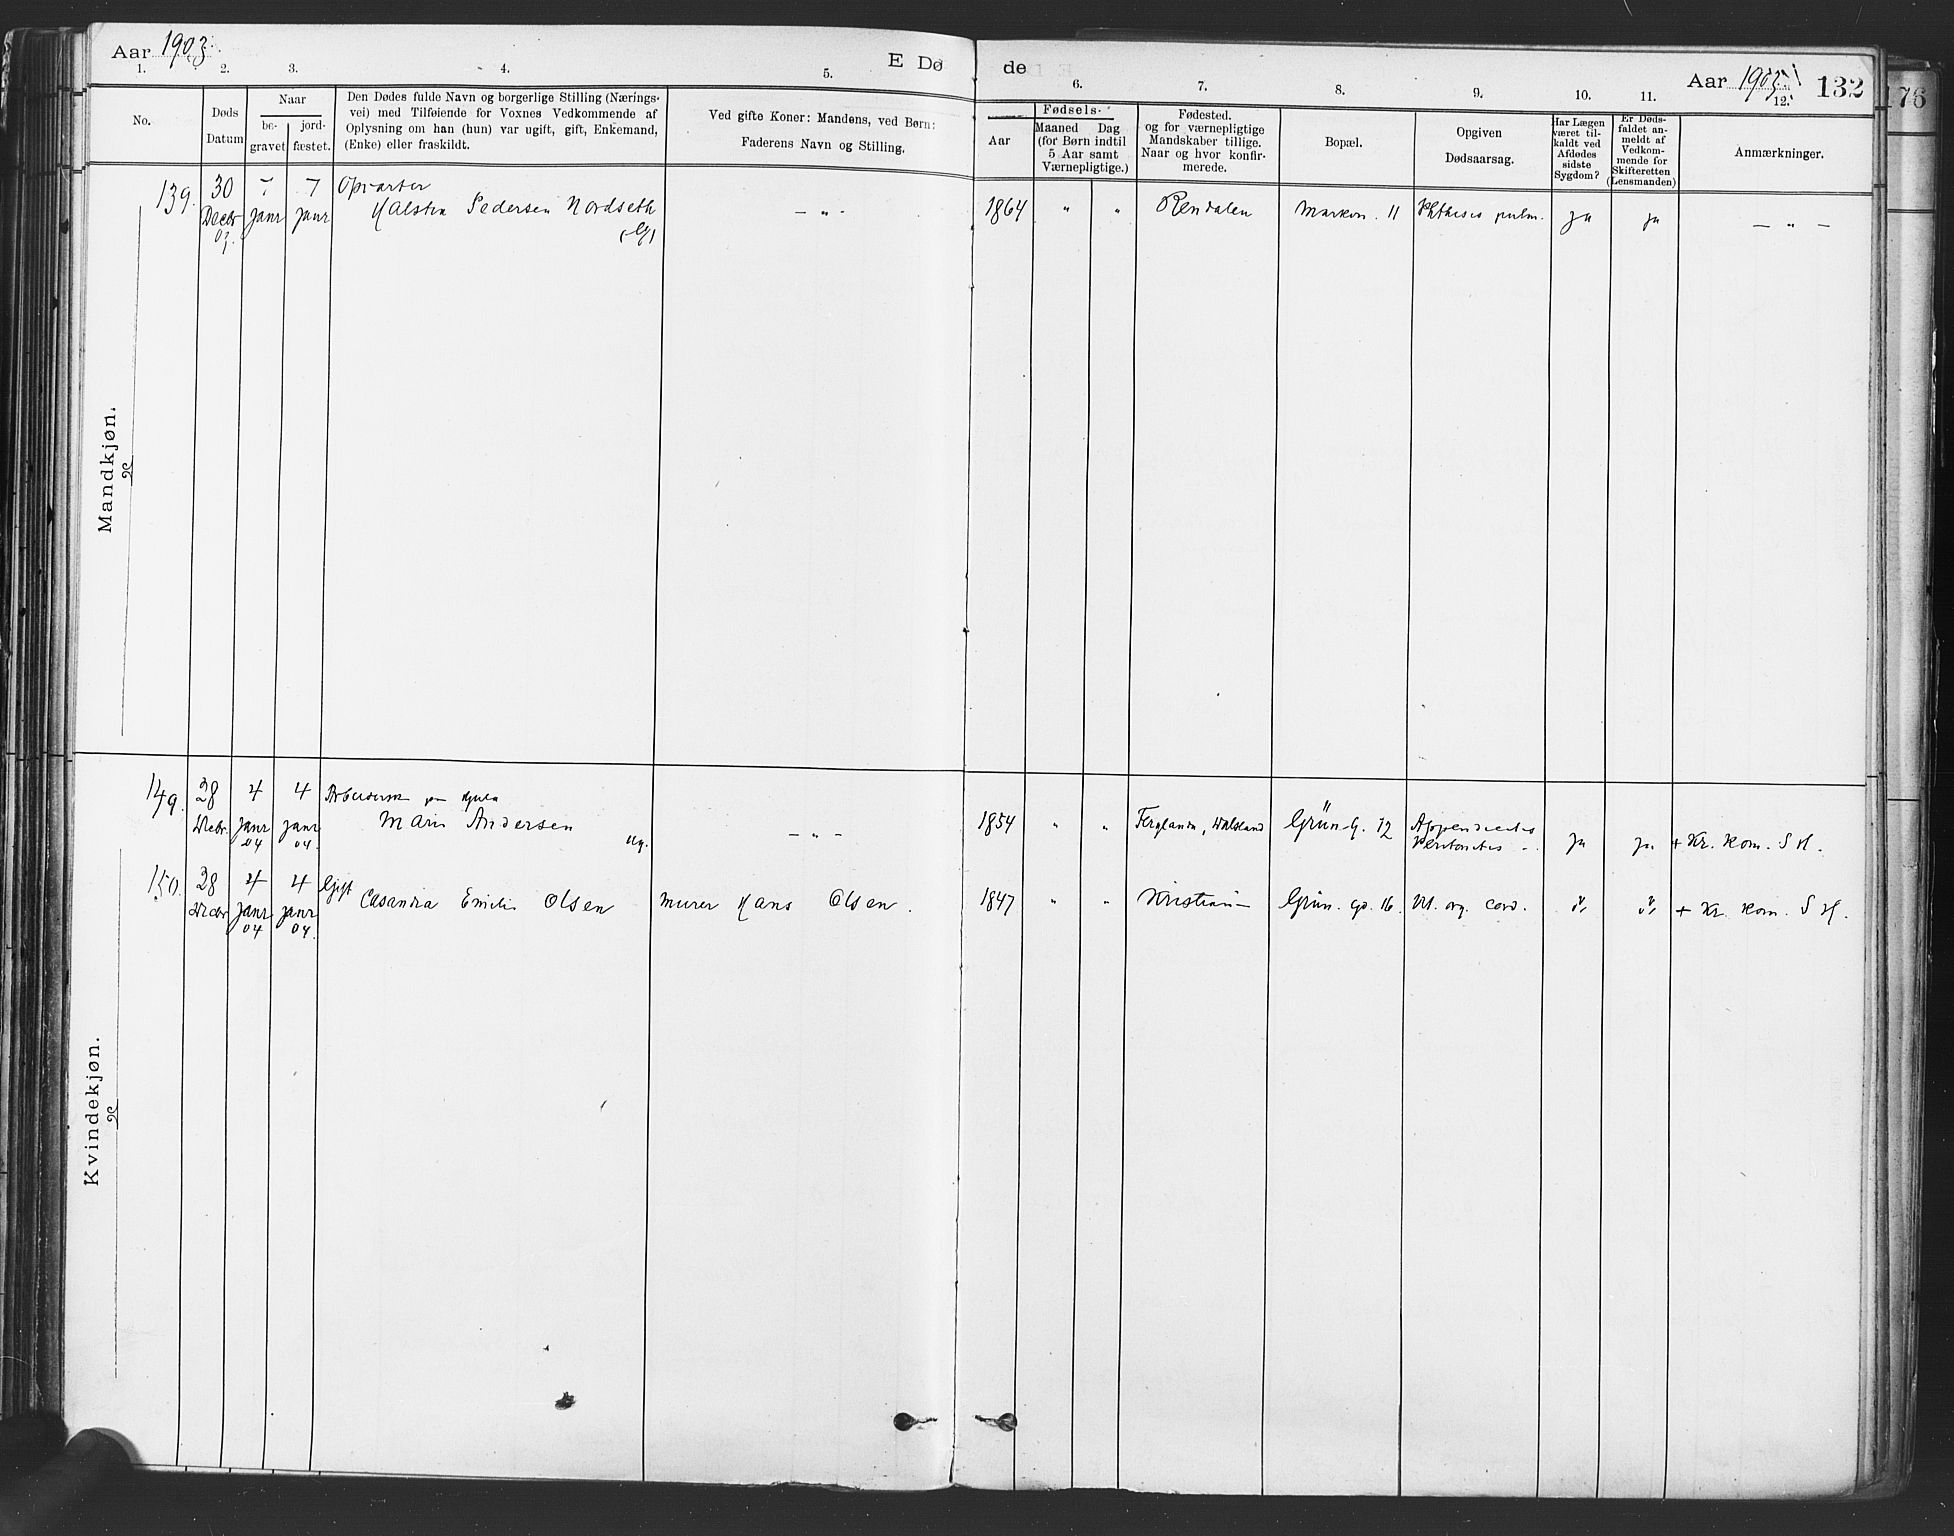 Aar 1903.
E Dø
de
Aar 1903.
132
176
1. 2. 3. 4. 5. 6. 7. 8. 9. 10. 11. 12.
No.
Døds Datum
Naar
be-
gravet
jord-
fæstet.
Den Dødes fulde Navn og borgerlige Stilling (Nærings-
vei) med Tilføiende for Voxnes Vedkommende af
Oplysning om han (hun) var ugift, gift, Enkemand,
(Enke) eller fraskildt.
Ved gifte Koner: Mandens, ved Børn:
Faderens Navn og Stilling.
Fødsels-
Aar
Maaned Dag
(for Børn indtil
5 Aar samt
Værnepligtige.)
Fødested.
og for værnepligtige
Mandskaber tillige.
Naar og hvor konfir-
merede.
Bopæl.
Opgiven
Dødsaarsag.
Har Lægen
været til-
kaldt ved
Afdødes
sidste
Sygdom?
Er Døds-
faldet an-
meldt af
Vedkom-
mende for
Skifteretten
(Lensmanden)
Anmærkninger.
Mandkjøn.
139. 30 7 7 Opvarter
Decbr Janr Janr Halsten Pedersen Nordseth — „ - 1864 „ „ Rendalen Markvn. 11 Phthisis pulm. ja ja — „ —
03.
Kvindekjøn.
149. 28 4 4
Decbr. Janr Janr Marie Andersen ug. — „ — 1854 „ „ Grünl. 12 Appendicitis
04 04. Peritonitis - ja ja + Kr. kom. S H.
150. 28 4 4 Gift
Decbr Janr Janr Casandra Emilie Olsen Murer Hans Olsen. 1847 „ „ Kristiania Grün. gd. 16. Vit. org. cord. „ „ + Kr. kom. S H.
04 04.